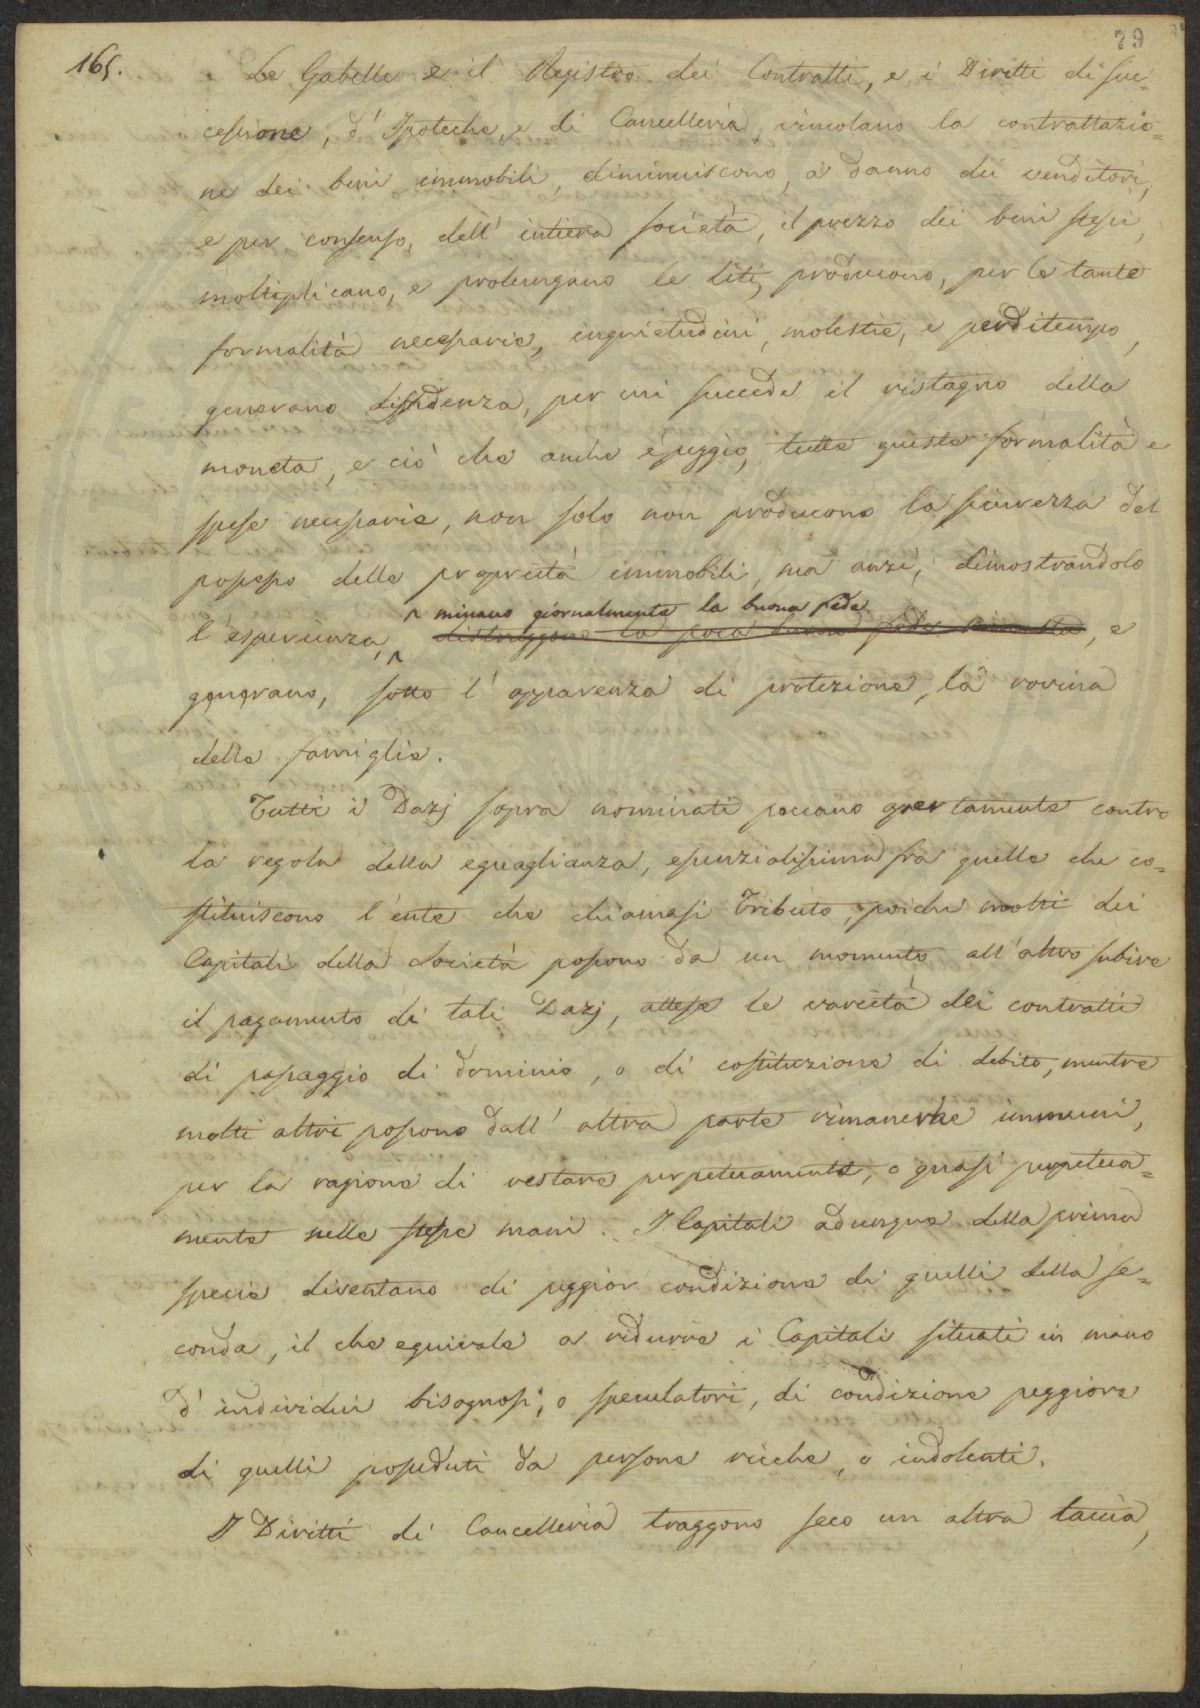 79
165.
Le Gabelle e il Registro dei Contratti, e i Diritti di suc-
cessione, d' Ipoteche, e di Cancelleria, vincolano la contrattazio=
ne dei beni immobili, diminuiscono, a danno dei venditori,
e per consenso, dell' intiera società, il prezzo dei beni stessi,
moltiplicano, e prolungano le liti, producono, per le tante
formalità necessarie, inquietudini, molestie, e perditempo,
generano diffidenza, per cui succede il ristagno della
moneta, e ciò che anche è peggio, tutte queste formalità e
spese necessarie, non solo non producono la sicurezza del
possesso delle proprietà immobili, ma anzi, dimostrandolo
minano giornalmente la buona fede
l'esperienza, distruggono la poca buona fede rimasta, e
generano, sotto l'apparenza di protezione, la rovina
delle famiglie.
Tutti i Dazj sopra nominati peccano apertamente contro
la regola della eguaglianza, essenzialissima frà quelle che co=
stituiscono l'ente che chiamasi Tributo, poichè molti dei
Capitali della Società possono da un momento all'altro subire
il pagamento di tali Dazj, attese le varietà dei contratti
di passaggio di dominio, o di costituzione di debito, mentre
molti altri possono dall' altra parte rimanerne immuni,
per la ragione di restare perpetuamente, o quasi perpetua=
mente nelle stesse mani. I Capitali adunque della prima
specie diventano di peggior condizione di quelli della se=
conda, il che equivale a ridurre i Capitali situati in mano
d' individui bisognosi, o speculatori, di condizione peggiore
di quelli posseduti da persone ricche, o indolenti.
I Diritti di Cancelleria traggono seco un altra taccia,